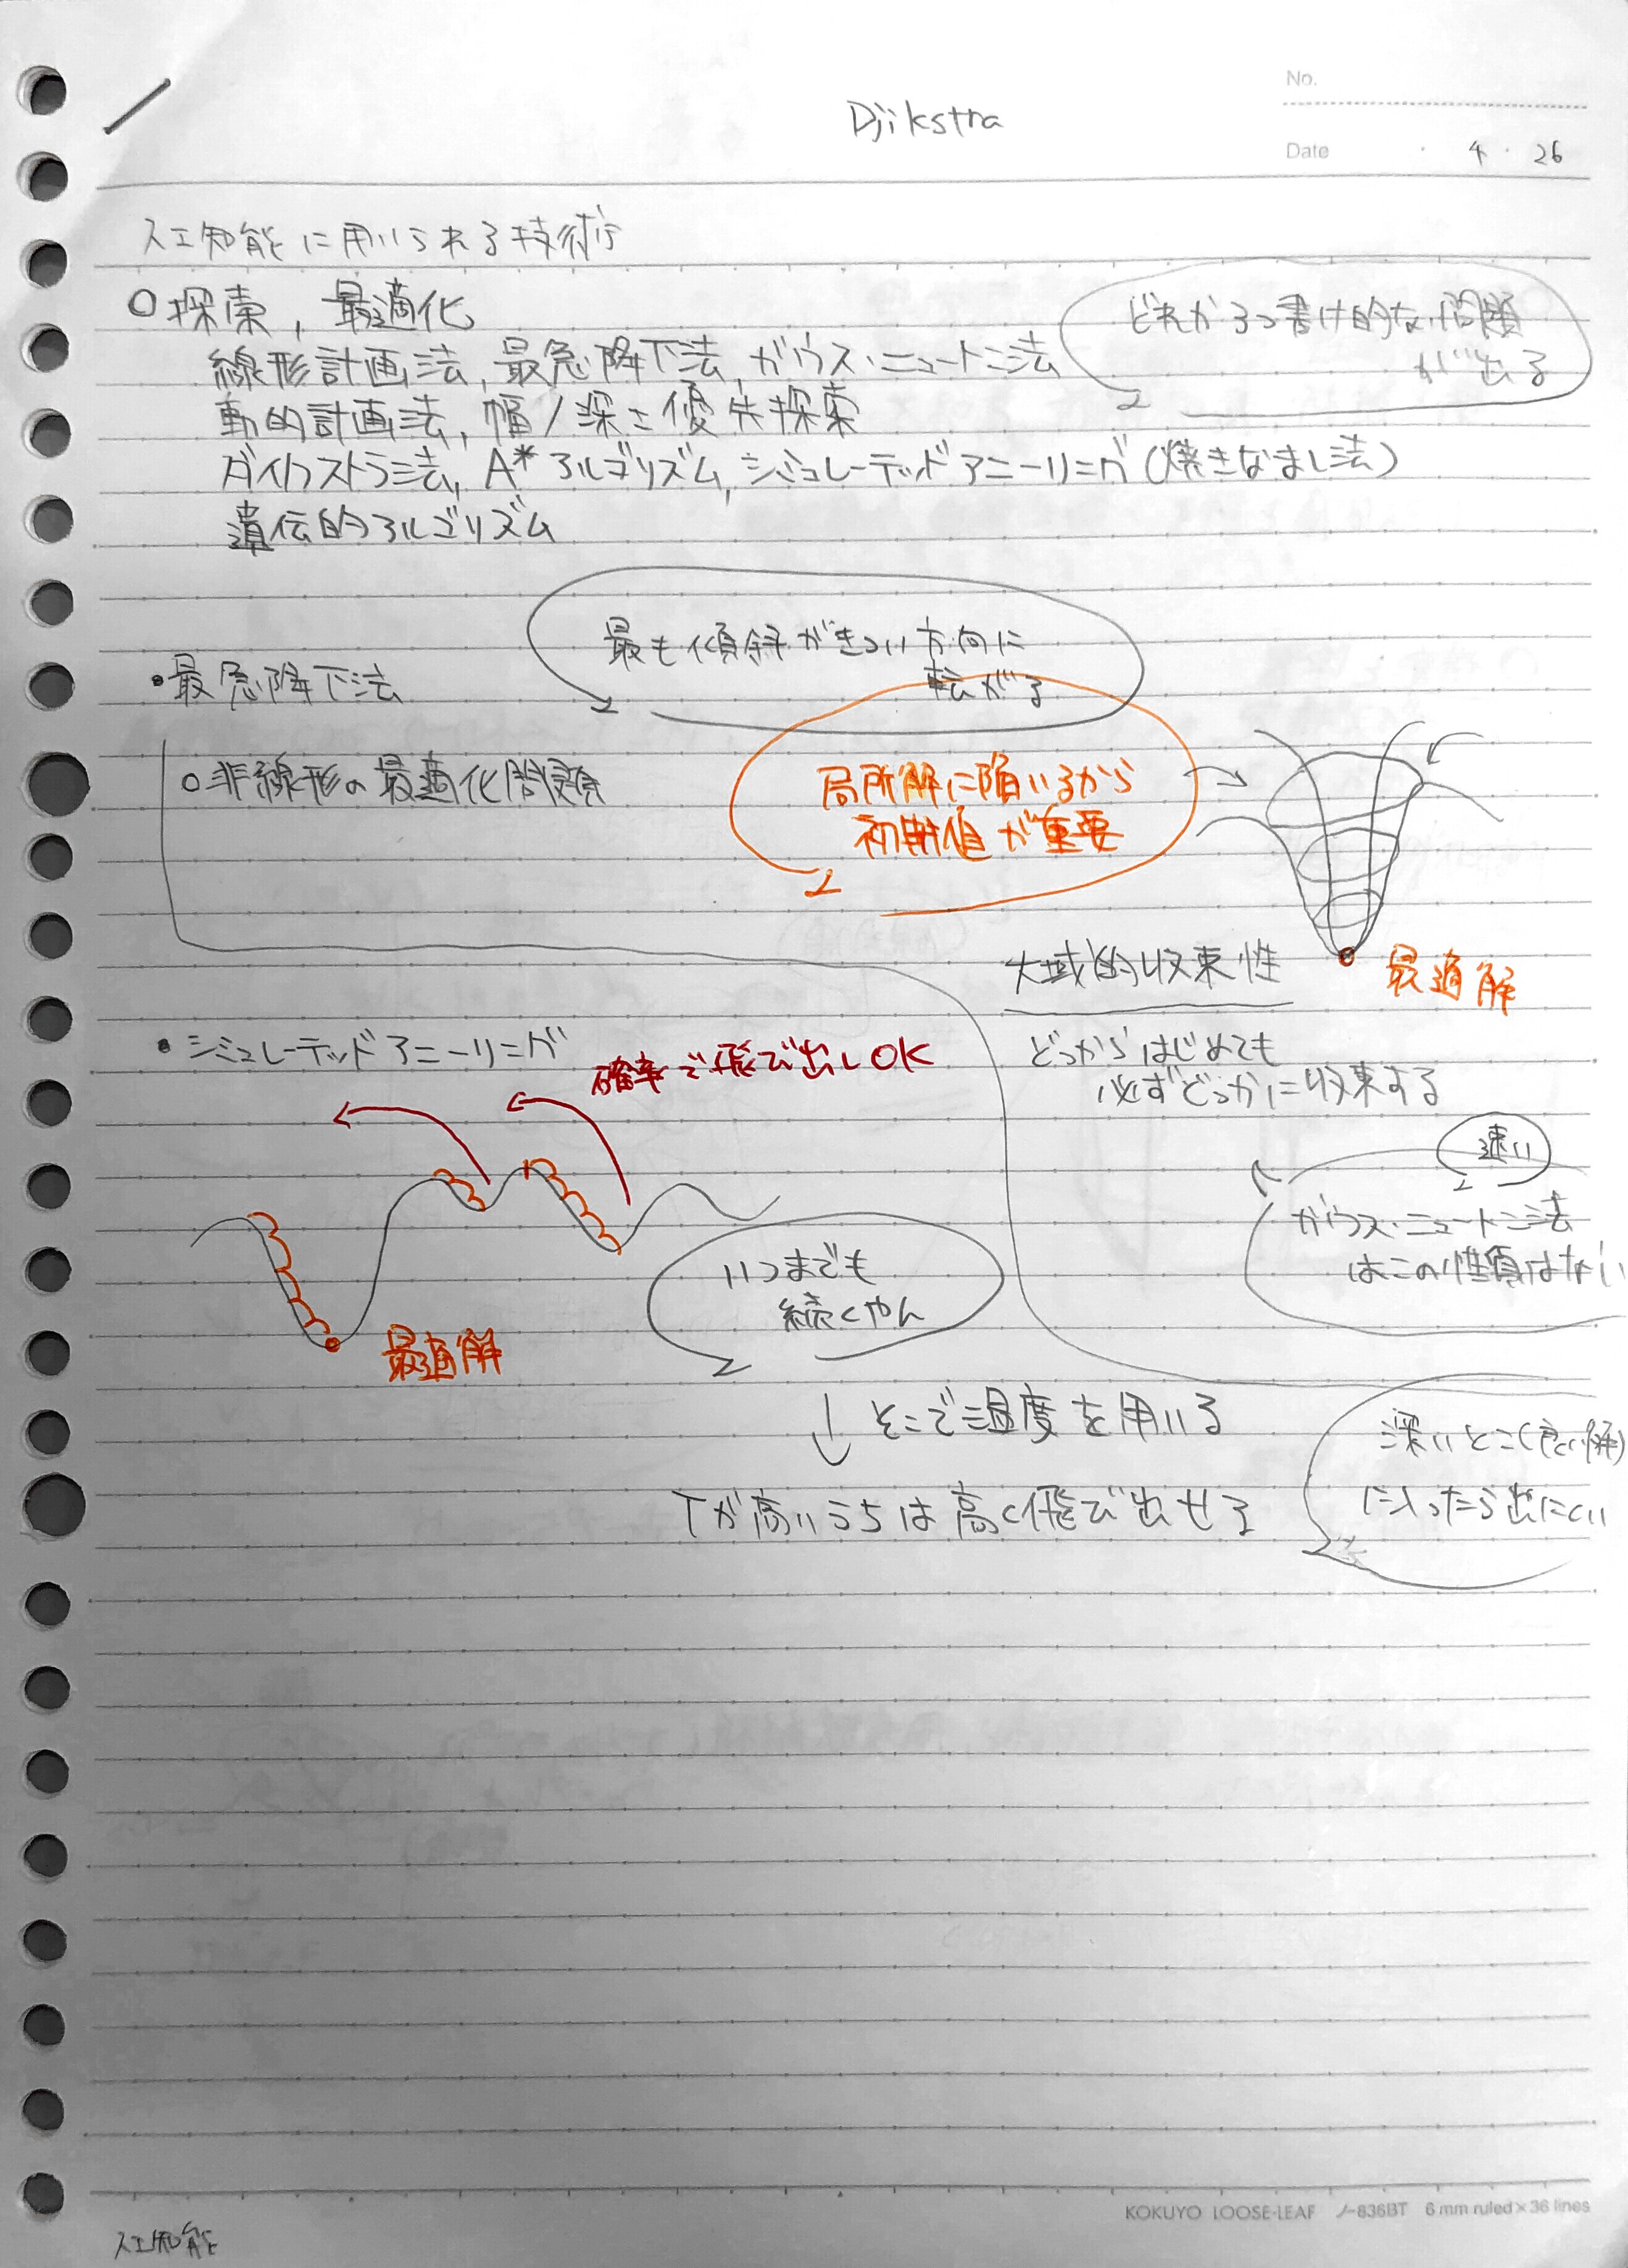 No.
Djikstra
Date ・ 4 ・ 26
人工知能に用いられる技術
○探索, 最適化
どれか3つ書け的な問題
が出る
線形計画法, 最急降下法, ガウス・ニュートン法
動的計画法, 幅/深さ優先探索
ダイクストラ法, A*アルゴリズム, シミュレーテッドアニーリング(焼きなまし法)
遺伝的アルゴリズム
最も傾斜がきつい方向に
転がる
・最急降下法
○非線形の最適化問題
局所解に陥いるから
初期値が重要
大域的収束性
最適解
どっからはじめても
必ずどっかに収束する
速い
ガウス・ニュートン法
はこの性質はない
・シミュレーテッドアニーリング
確率で飛び出しOK
最適解
いつまでも
続くやん
↓ そこで温度を用いる
Tが高いうちは高く飛び出せる
深いとこ(良い解)
に入ったら出にくい
KOKUYO LOOSE-LEAF ノ-836BT 6 mm ruled×36 lines
人工知能